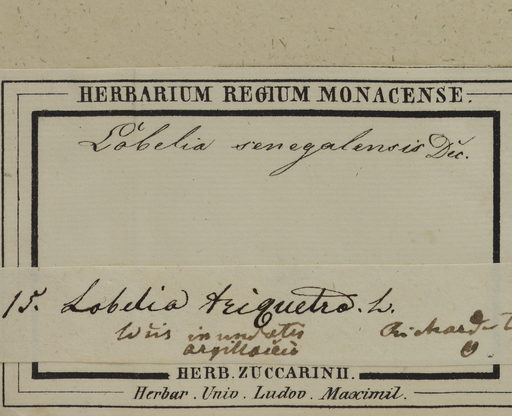 HERBARIUM REGIUM MONACENSE.
Lobelia senegalensis Dec.
15. Lobelia triquetra. L.
inundatis
argillaceis
HERB. ZUCCARINII.
Herbar. Univ. Ludov. Maximil.